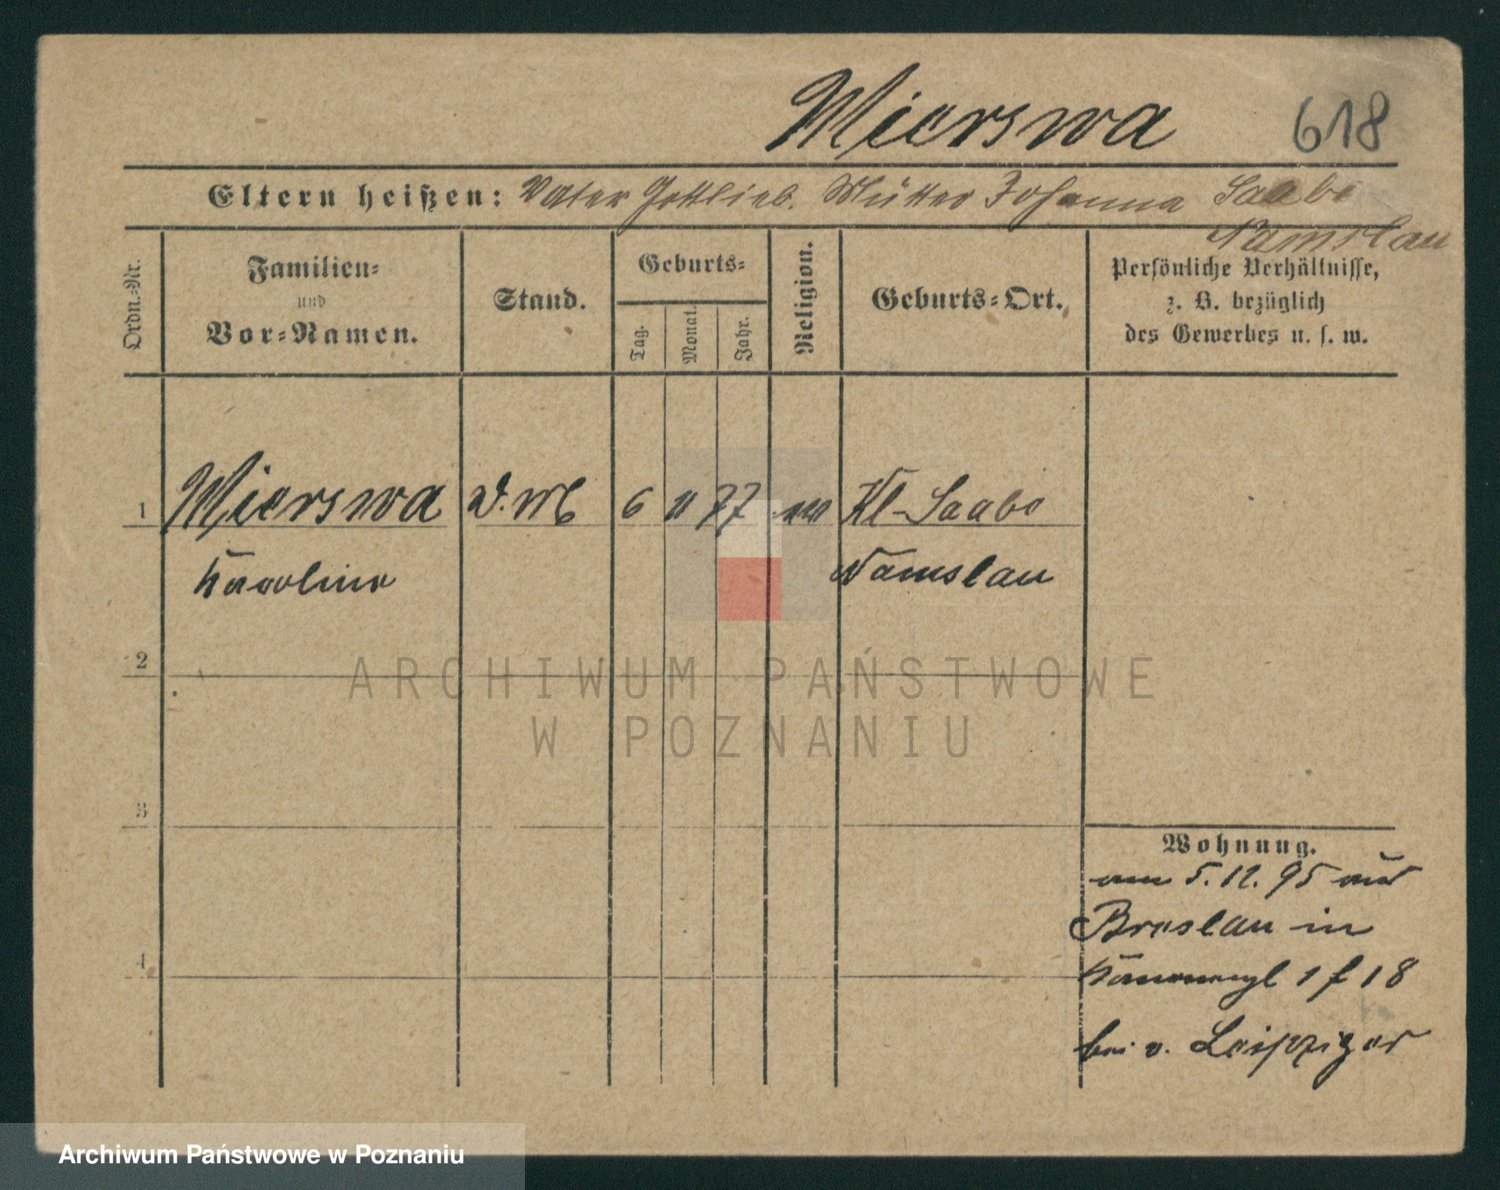 Mierswa 618
Eltern heißen: Vater Gottlieb. Mutter Johanna Saabe
Namslau
Ordn.-Nr.
Familien-
und
Vor-Namen.
Stand.
Geburts-
Tag.
Monat.
Jahr.
Religion.
Geburts-Ort.
Persönliche Verhältnisse,
z. B. bezüglich
des Gewerbes u. s. w.
1 Mierswa D. M 6 11 77 Kl-Saabe
Karoline Namslau
2
3
4
Wohnung.
am 5. 12. 95 aus
Breslau in
1 f 18
bei v. Leipziger
ARCHIWUM PAŃSTWOWE
W POZNANIU
Archiwum Państwowe w Poznaniu